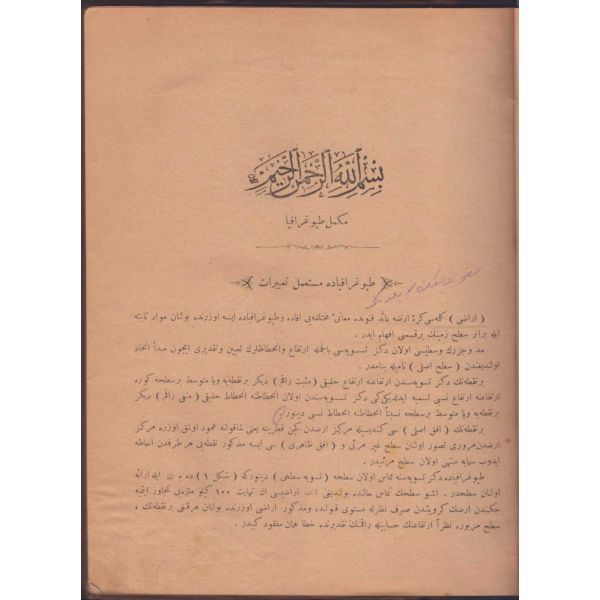 بسم الله الرحمن الرحيم
مكمل طپوغرافيا
طپوغرافياده مستعمل تعبيرات
( اراضی ) كلمه‌سی كرهٔ ارضه عائد فنونده معانئ مختلفه‌یی افاده وطپوغرافياده ايسه اوزرنده بولنان مواد ثابته
ايله برابر سطح زمينك برقسمنی افهام ايدر .
مد وجزرك وسطيسی اولان دكز تسويه‌سی بالجمله ارتفاع وانحطاطلرك تعيين وتقديری ايچون مبدأ اتخاذ
اولنديغندن ( سطح اصلی ) ناميله بنامدر .
برنقطه‌نك دكز تسويه‌سندن ارتفاعنه ارتفاع حقيقی ( مثبت راقم ) ديكر برنقطه‌یه ويا متوسط برسطحه كوره
ارتفاعنه ارتفاع نسبی تسميه ايدلديكی كبی دكز تسويه‌سندن اولان انحطاطنه انحطاط حقيقی ( منفی راقم ) ديكر
برنقطه‌یه ويا متوسط برسطحه نسبتاً انحطاطنه انحطاط نسبی دينور .
برنقطه‌نك ( افق اصلی ) سی كنديسيله مركز ارضدن كچن قطرينه يعنی شاقولنه عمود اولق اوزره مركز
ارضدن مروری تصور اولنان سطح غير مرئی و ( افق ظاهری ) سی ايسه مذكور نقطه‌یی هرطرفدن احاطه
ايدوب سمايه منتهی اولان سطح مرئيدر .
طپوغرافياده دكز تسويه‌سنه مماس اولان سطحه ( تسويه سطحی ) دينوركه ( شكل ١ ) ده م ں ايله ارائه
اولنان سطحدر . اشبو سطحك تماس حالنده بولنديغی ا ب اراضيسی اك نهايت ١٠٠ كيلو متره‌یی تجاوز ايتميه
جكندن ارضك كرويتندن صرف نظرله مستوی قبولنده ومذكور اراضی اوزرنده بولنان هرقنغی برنقطه‌نك ،
سطح مزبوره نظراً ارتفاعنك حسابيله راقمنك تقديرنده خطا همان مفقود كيدر .